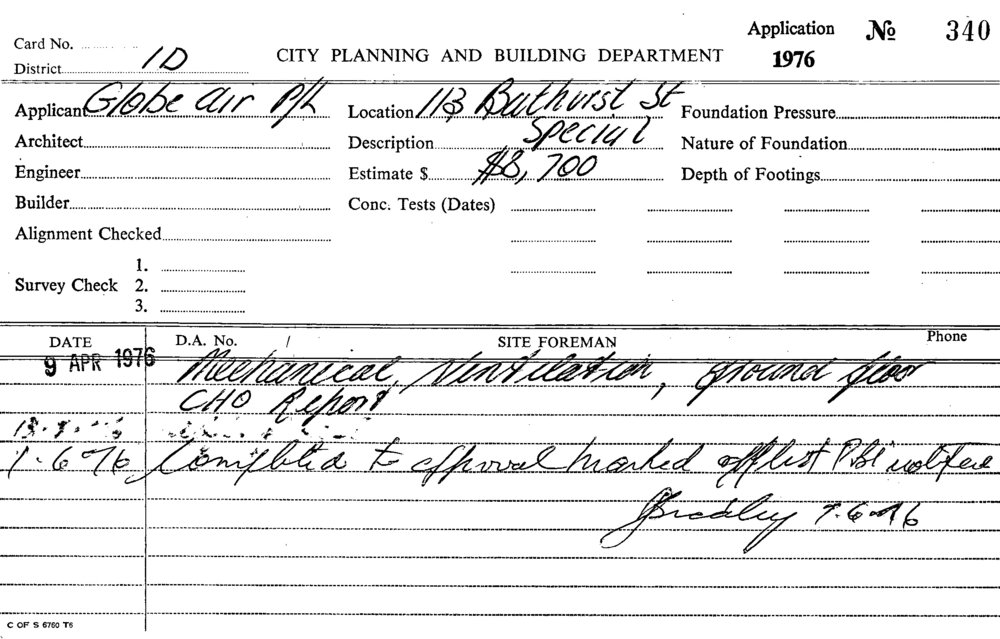 Application № 340
Card No. 1976
District 1D CITY PLANNING AND BUILDING DEPARTMENT
Applicant Globe Air P/L Location 113 Bathurst St Foundation Pressure
Architect Description Special Nature of Foundation
Engineer Estimate $ $8,700 Depth of Footings
Builder Conc. Tests (Dates)
Alignment Checked
1.
Survey Check 2.
3.
DATE D.A. No. / SITE FOREMAN Phone
9 APR 1976 Mechanical Ventilation, ground floor
CHO Report
1.6.76 Completed to approval marked off list
7.6.76
C OF S 6760 T6